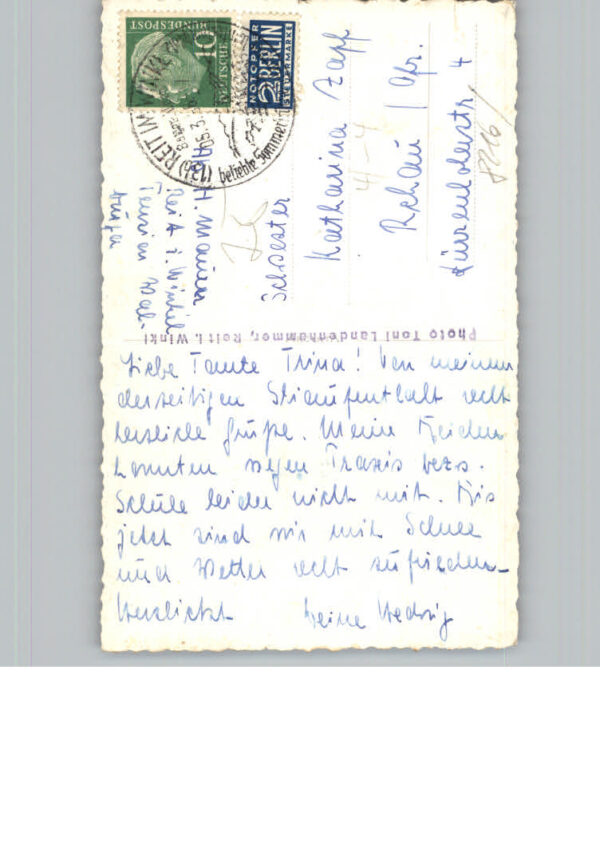 10
DEUTSCHE
BUNDESPOST
NOTOPFER
2 BERLIN
STEUERMARKE
(13b) REIT IM WINKL
beliebte Sommer
Schwester
Katharina Zapf
Rehau / Ofr.
4
H.
Reit i. Winkl
Photo Toni Landenhammer, Reit i. Winkl
Liebe Tante Trina! Von meinem
derzeitigen Skiaufenthalt recht
herzliche Grüße. Meine beiden
konnten wegen Praxis bezw.
Schule leider nicht mit. Bis
jetzt sind wir mit Schnee
und Wetter recht zufrieden-
Herzlichst Deine Hedwig